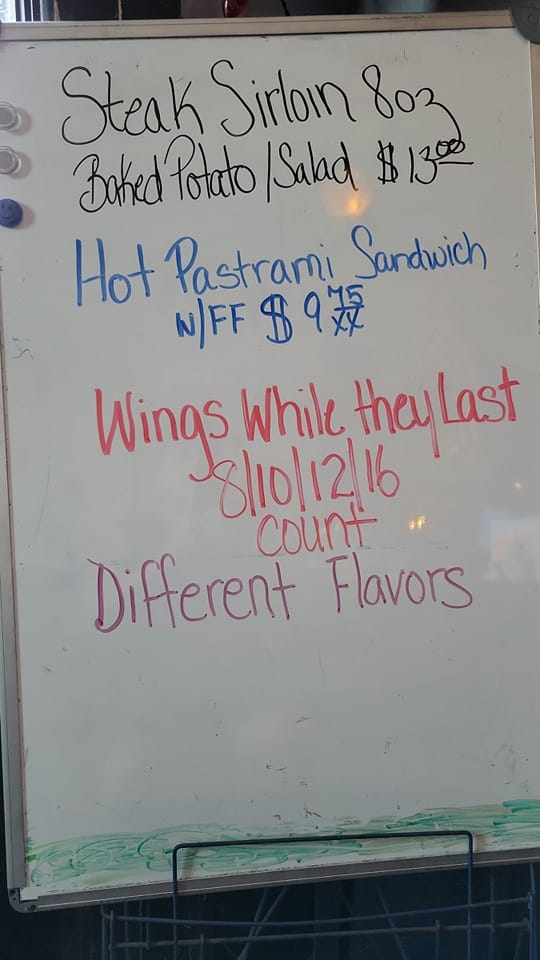 Steak Sirloin 8oz
Baked Potato/Salad $13.00
Hot Pastrami Sandwich
W/FF $9 75/XX
Wings While they Last
8/10/12/16
count
Different Flavors